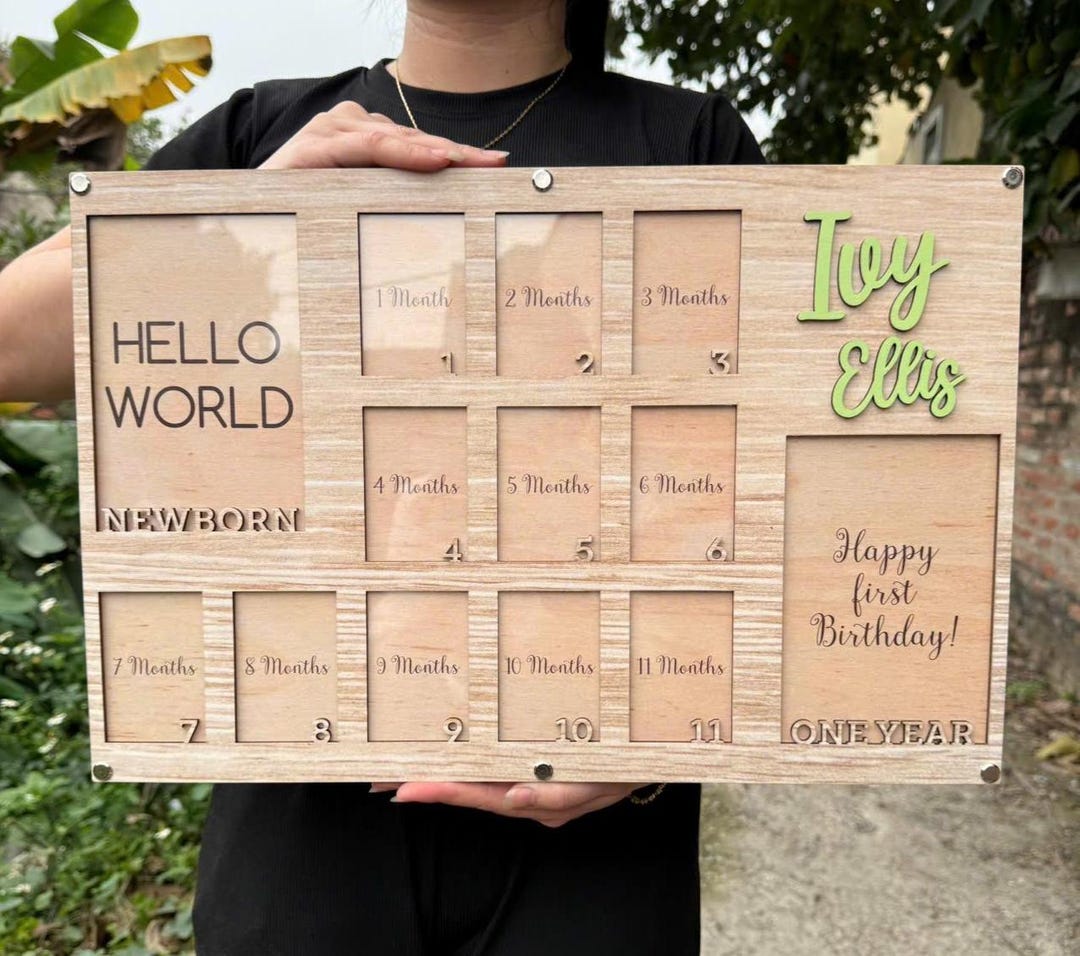 HELLO
WORLD
NEWBORN
1 Month
1
2 Months
2
3 Months
3
Ivy
Ellis
4 Months
4
5 Months
5
6 Months
6
7 Months
7
8 Months
8
9 Months
9
10 Months
10
11 Months
11
Happy
first
Birthday!
ONE YEAR